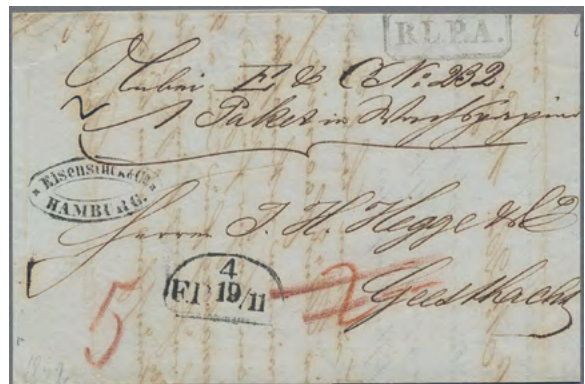 R.L.P.A.
Anbei E & C No. 232.
1 Paket in Wachspapier
Eisenstuck & Co
HAMBURG.
Herrn J. H. Hegge & Co
4
19/11
5
2
Geesthacht